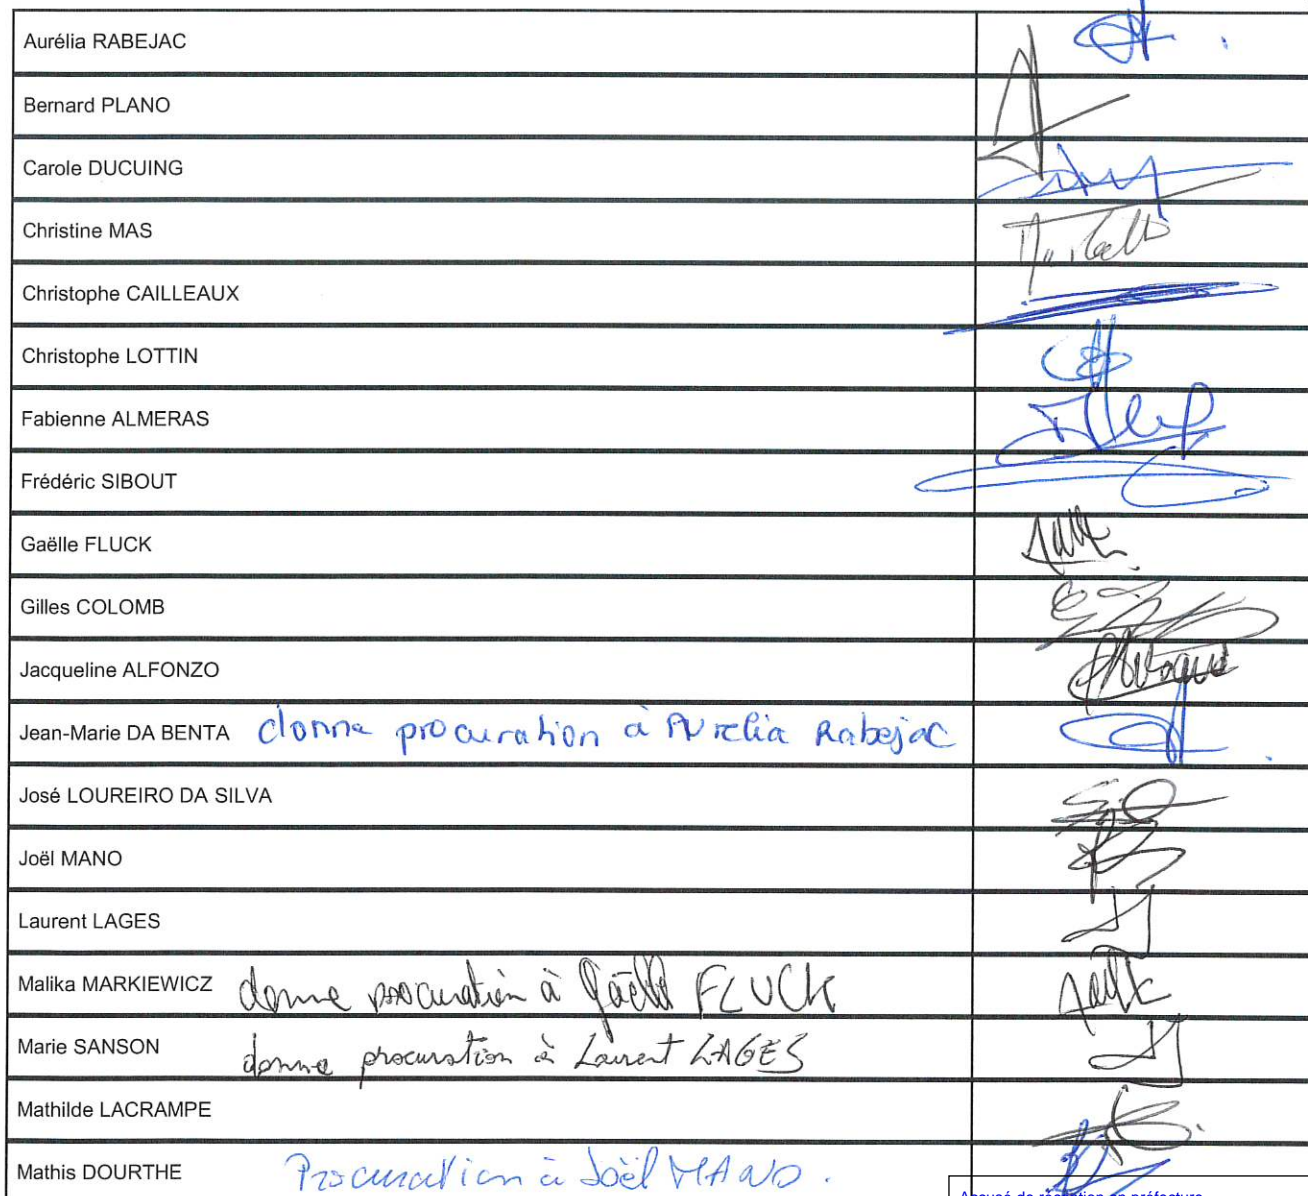 Aurélia RABEJAC
Bernard PLANO
Carole DUCUING
Christine MAS
Christophe CAILLEAUX
Christophe LOTTIN
Fabienne ALMERAS
Frédéric SIBOUT
Gaëlle FLUCK
Gilles COLOMB
Jacqueline ALFONZO
Jean-Marie DA BENTA donne procuration à Aurelia Rabejac
José LOUREIRO DA SILVA
Joël MANO
Laurent LAGES
Malika MARKIEWICZ donne procuration à Gaëlle FLUCK
Marie SANSON donne procuration à Laurent LAGES
Mathilde LACRAMPE
Mathis DOURTHE Procuration à Joël MANO.
Accusé de réception en préfecture